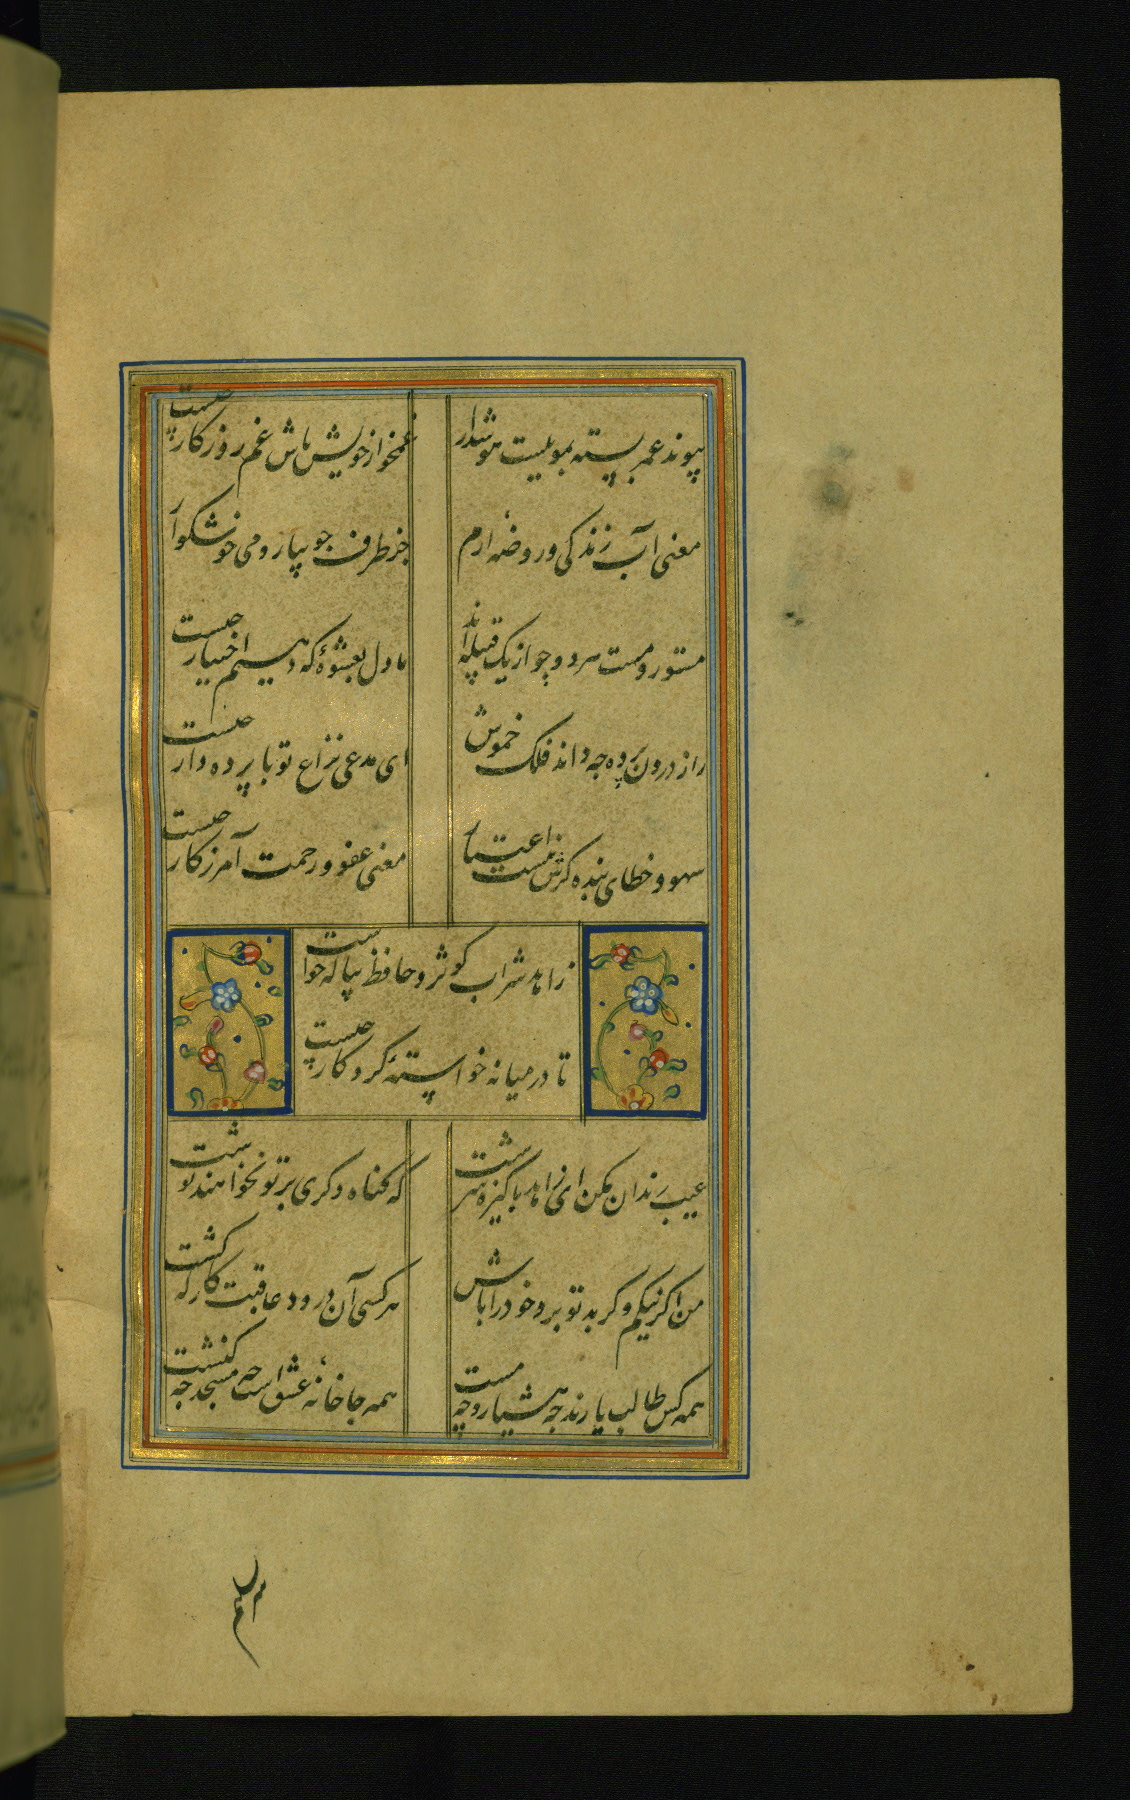 پیوند عمر بسته بموییست هوشدار
غمخوار خویش باش غم روزکار چیست
معنی آب زندکی و روضهٔ ارم
جز طرف جویبار و می خوشکوار
مستور و مست هر دو چو از یک قبیله‌اند
ما دل بعشوهٔ که دهیم اختیار چیست
راز درون پرده چه داند فلک خموش
ای مدعی نزاع تو با پرده دار چیست
سهو و خطای بنده کرش نیست اعتبار
معنی عفو و رحمت آمرزکار چیست
زاهد شراب کوثر و حافظ پیاله خواست
تا در میانه خواستهٔ کردکار چیست
عیب رندان مکن ای زاهد پاکیزه سرشت
که کناه دکری بر تو نخواهند نوشت
من اکر نیکم و کر بد تو برو خود را باش
هر کسی آن درود عاقبت کار که کشت
همه کس طالب یارند چه هشیار و چه مست
همه جا خانهٔ عشق است چه مسجد چه کنشت